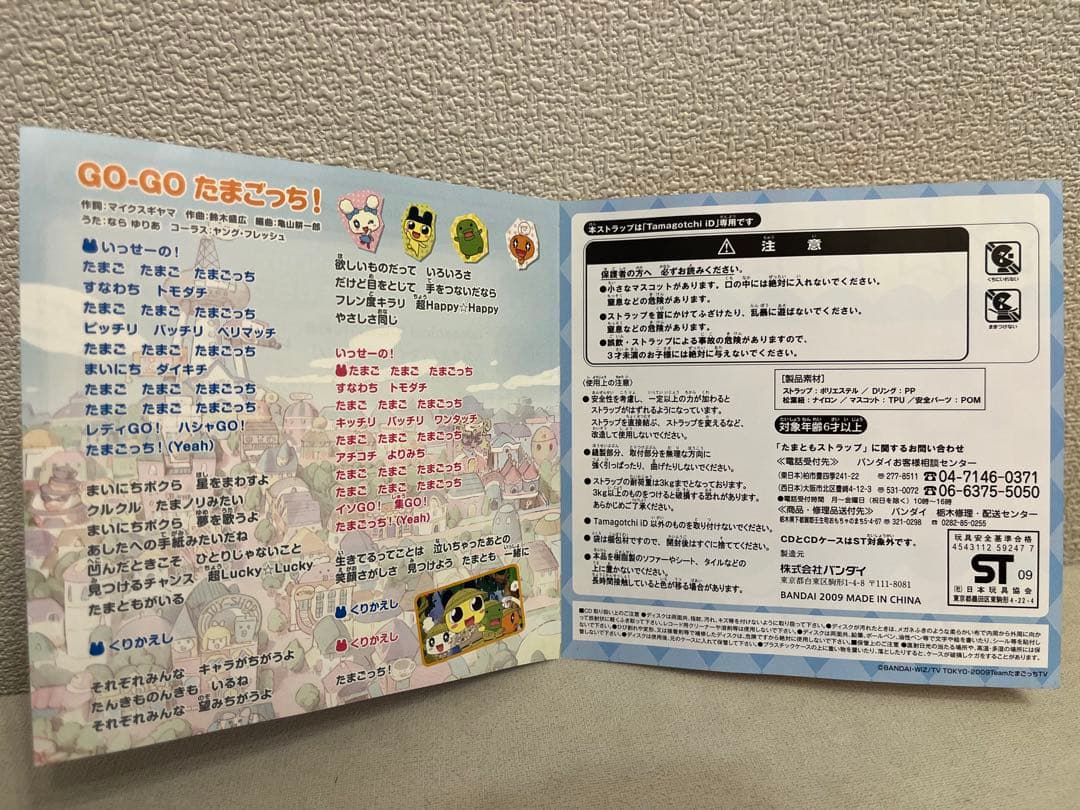 GO-GO たまごっち!
作詞:マイクスギヤマ 作曲:鈴木盛広 編曲:亀山耕一郎
うた:なら ゆりあ コーラス:ヤング・フレッシュ
いっせーの!
たまご たまご たまごっち
すなわち トモダチ
たまご たまご たまごっち
ピッチリ バッチリ ベリマッチ
たまご たまご たまごっち
まいにち ダイキチ
たまご たまご たまごっち
レディGO! ハシャGO!
たまごっち!(Yeah)
まいにちボクら 星をまわすよ
クルクル たまノリみたい
まいにちボクら 夢を歌うよ
あしたへの手紙みたいだね
凹んだときこそ ひとりじゃないこと
見つけるチャンス 超Lucky☆Lucky
たまともがいる
くりかえし
それぞれみんな キャラがちがうよ
たんきものんきも いるね
それぞれみんな 望みちがうよ
欲しいものだって いろいろさ
だけど目をとじて 手をつないだなら
フレンド度キラリ 超Happy☆Happy
やさしさ同じ
いっせーの!
たまご たまご たまごっち
すなわち トモダチ
たまご たまご たまごっち
キッチリ バッチリ ワンタッチ
たまご たまご たまごっち
アチコチ よりみち
たまご たまご たまごっち
イソGO! 集GO!
たまごっち!(Yeah)
生きてるってことは 泣いちゃったあとの
笑顔さがしさ 見つけよう たまとも 一緒に
くりかえし
くりかえし
たまごっち!
本ストラップは「Tamagotchi iD」専用です
注意
保護者の方へ 必ずお読みください。
●小さなマスコットがあります。口の中には絶対に入れないでください。
窒息などの危険があります。
●ストラップを首にかけてふざけたり、乱暴に遊ばないでください。
窒息などの危険があります。
●誤飲・ストラップによる事故の危険がありますので、
3才未満のお子様には絶対に与えないでください。
くちにいれない
まきつけない
〈使用上の注意〉
●安全性を考慮し、一定以上の力が加わると
ストラップがはずれるようになっています。
ストラップを直接結ぶ、ストラップを変えるなど、
改造して使用しないでください。
●縫製部分、取付部分を無理な方向に
強く引っぱったり、曲げたりしないでください。
●ストラップの耐荷重は3kgまでとなっております。
3kg以上のものをつけると破損する恐れがあります。
あらかじめご了承ください。
●Tamagotchi iD 以外のものを取り付けないでください。
●袋は梱包材ですので、開封後はすぐに捨ててください。
●本品を樹脂製のソファーやシート、タイルなどの
上に置かないでください。
長時間接触していると色が移る場合があります。
[製品素材]
ストラップ:ポリエステル / Dリング:PP
松葉紐:ナイロン / マスコット:TPU / 安全パーツ:POM
対象年齢6才以上
「たまともストラップ」に関するお問い合わせ
≪電話受付先≫ バンダイお客様相談センター
(東日本)柏市豊四季241-22 〒277-8511 ☎04-7146-0371
(西日本)大阪市北区豊崎4-12-3 〒531-0072 ☎06-6375-5050
●電話受付時間 月〜金曜日(祝日を除く)10時〜16時
≪商品・修理品送付先≫ バンダイ 栃木修理・配送センター
栃木県下都賀郡壬生町おもちゃのまち5-4-67 〒321-0298 ☎0282-85-0255
CDとCDケースはST対象外です。
製造元
株式会社バンダイ
東京都台東区駒形1-4-8 〒111-8081
BANDAI 2009 MADE IN CHINA
玩具安全基準合格
4543112 59247 7
ST 09
(社)日本玩具協会
東京都墨田区東駒形4-22-4
©BANDAI・WiZ/TV TOKYO・2009TeamたまごっちTV